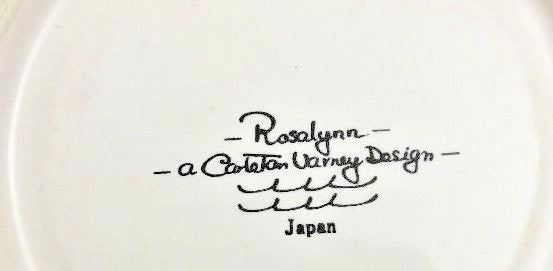 - Rosalynn -
- a Carleton Varney Design -
Japan